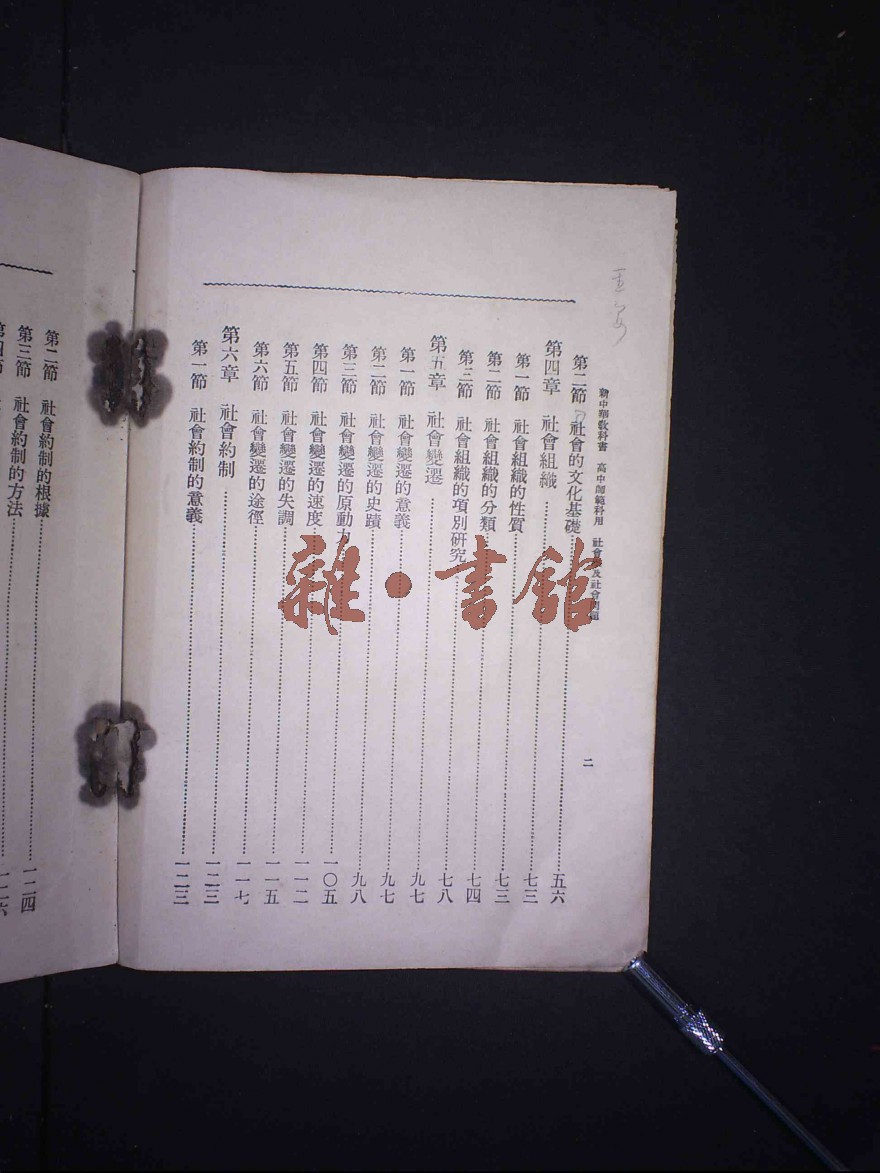 新中華教科書　高中師範科用　社會學及社會問題　二
第二節　社會的文化基礎……五六
第四章　社會組織……七三
第一節　社會組織的性質……七三
第二節　社會組織的分類……七四
第三節　社會組織的項別研究……七八
第五章　社會變遷……九七
第一節　社會變遷的意義……九七
第二節　社會變遷的史蹟……九八
第三節　社會變遷的原動力……一〇五
第四節　社會變遷的速度……一一二
第五節　社會變遷的失調……一一五
第六節　社會變遷的途徑……一一七
第六章　社會約制……一二三
第一節　社會約制的意義……一二三
第二節　社會約制的根據……一二四
第三節　社會約制的方法……一二六
第四節
雜•書館